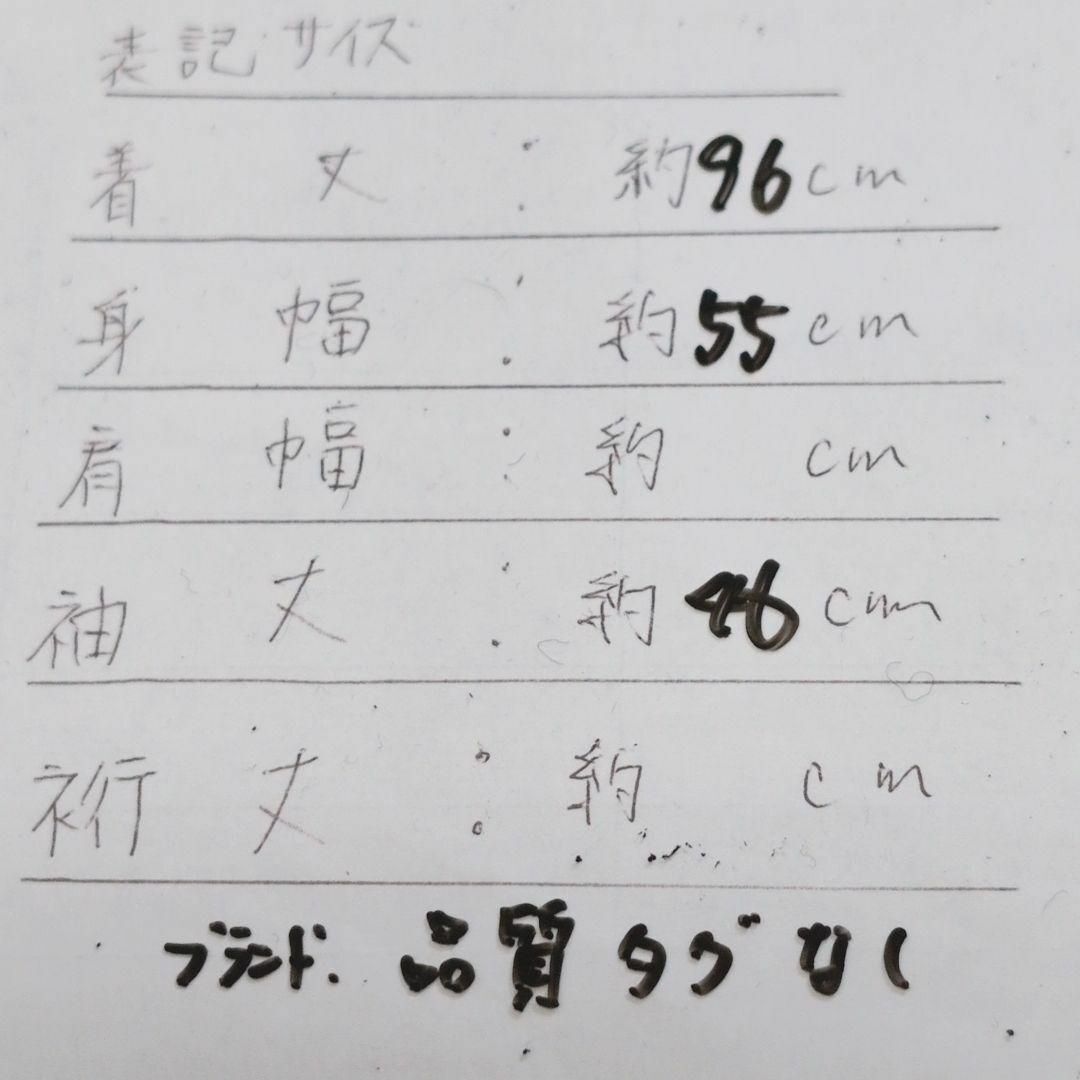 表記サイズ
着丈：約96cm
身幅：約55cm
肩幅：約　cm
袖丈：約46cm
裄丈：約　cm
ブランド．品質タグなし